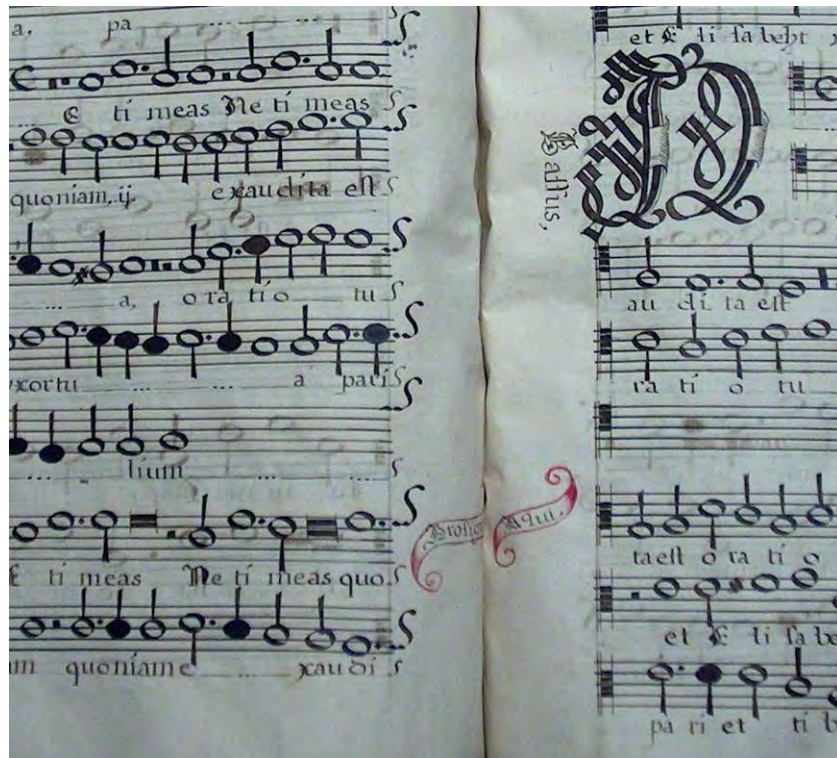 a, pa
Ne ti meas Ne ti meas
quoniam, ij. exaudita est
a, oratio tu
exortu a pari
lium
Ne ti meas Ne ti meas quo
am quoniam e xaudi
Prosigue
Aqui.
et E li sabeht
Bassus,
au di ta est
ra ti o tu
ta est o ra ti o
et E li sa be
pa ri et ti b